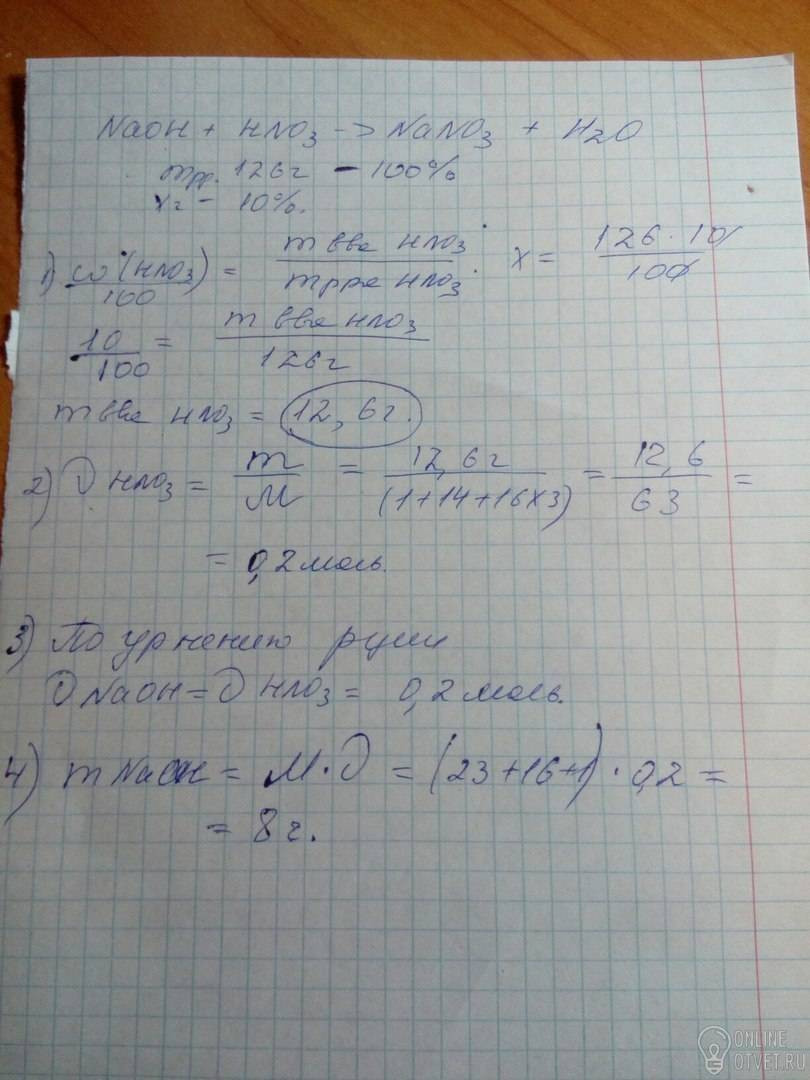 NaOH + HNO3 -> NaNO3 + H2O
mрр. 126г - 100%
xг - 10%.
1) ω(HNO3)/100 = m вва HNO3 / m рра HNO3 x = 126·10/100
10/100 = m вва HNO3 / 126г
m вва HNO3 = 12,6г.
2) ν HNO3 = m/M = 12,6г/(1+14+16x3) = 12,6/63 =
= 0,2 моль.
3) По урнению рции
ν NaOH = ν HNO3 = 0,2 моль.
4) m NaOH = M·ν = (23+16+1)·0,2 =
= 8г.
ONLINE
OTVET.RU